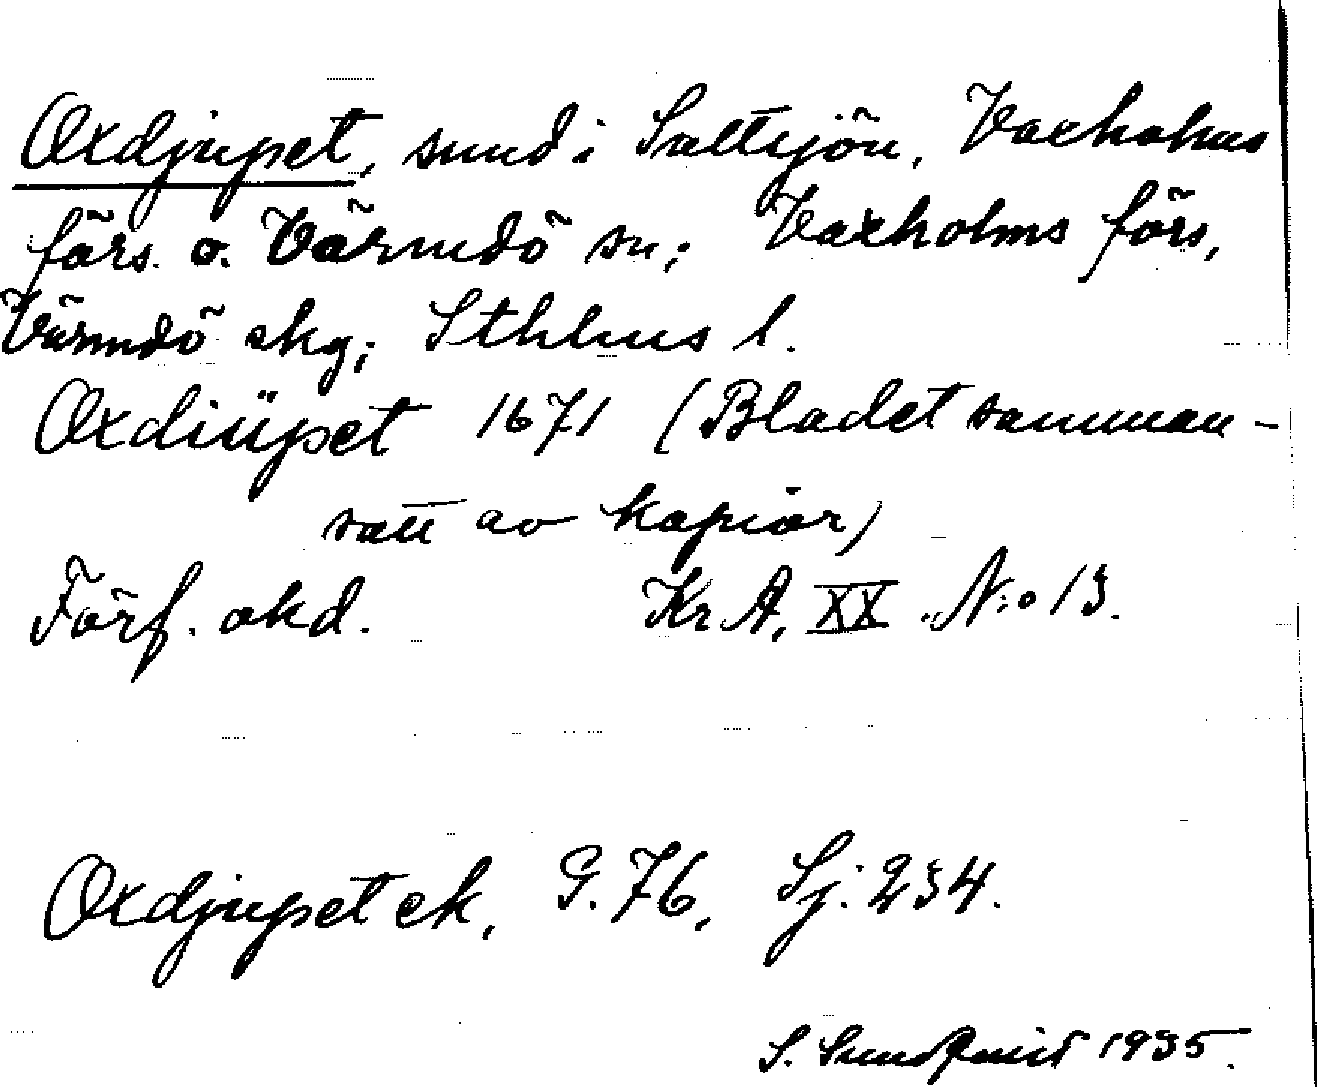 Oxdjupet, sund i Saltsjön, Vaxholms
förs. o. Värmdö sn; Vaxholms förs,
Värmdö skg; Sthlms l.
Oxdiüpet 1671 (Bladet samman-
satt av kopior)
Förf. okd. Kr A, XX. N:o 13.
Oxdjupet ek, G. 76, Sj. 234.
S. Sundqvist 1935.